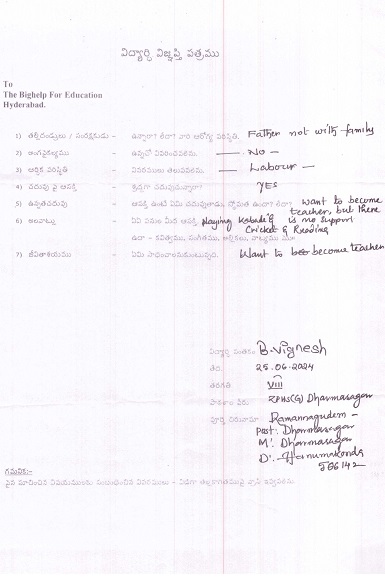 విద్యార్థి విజ్ఞప్తి పత్రము
To
The Bighelp For Education
Hyderabad.
1) తల్లిదండ్రులు / సంరక్షకుడు – ఉన్నారా? లేదా? వారి ఆరోగ్య పరిస్థితి. Father not with family
2) అంగవైకల్యము – ఉన్నచో వివరించవలెను. — NO —
3) ఆర్థిక పరిస్థితి – వివరములు తెలుపవలెను. — Labour —
4) చదువు పై ఆసక్తి – శ్రద్ధగా చదువుతున్నారా? YES
5) ఉన్నతచదువు – ఆసక్తి ఉంటే ఏమి చదువుతాడు స్తోమత ఉందా? లేదా? want to become
teacher, but there
is no support
6) అలవాట్లు – ఏవి పనుల మీద ఆసక్తి playing Kabadi &
Cricket & Reading
ఉదా – కవిత్వము, సంగీతము, అల్లికలు, నాట్యము
7) జీవితాశయము – ఏమి సాధించాలనుకుంటున్నది. Want to become teacher
విద్యార్థి సంతకం B. Vignesh
తేది. 25.06.2024
తరగతి VIII
పాఠశాల పేరు ZPHS(G) Dharmasagar
పూర్తి చిరునామా Ramannagudem –
Post: Dharmasagar
M: Dharmasagar
D: Hanumakonda
506142
గమనిక:-
పైన సూచించిన విషయములకు సంబంధించిన వివరములు – విడిగా తెల్లకాగితముపై వ్రాసి ఇవ్వవలెను.